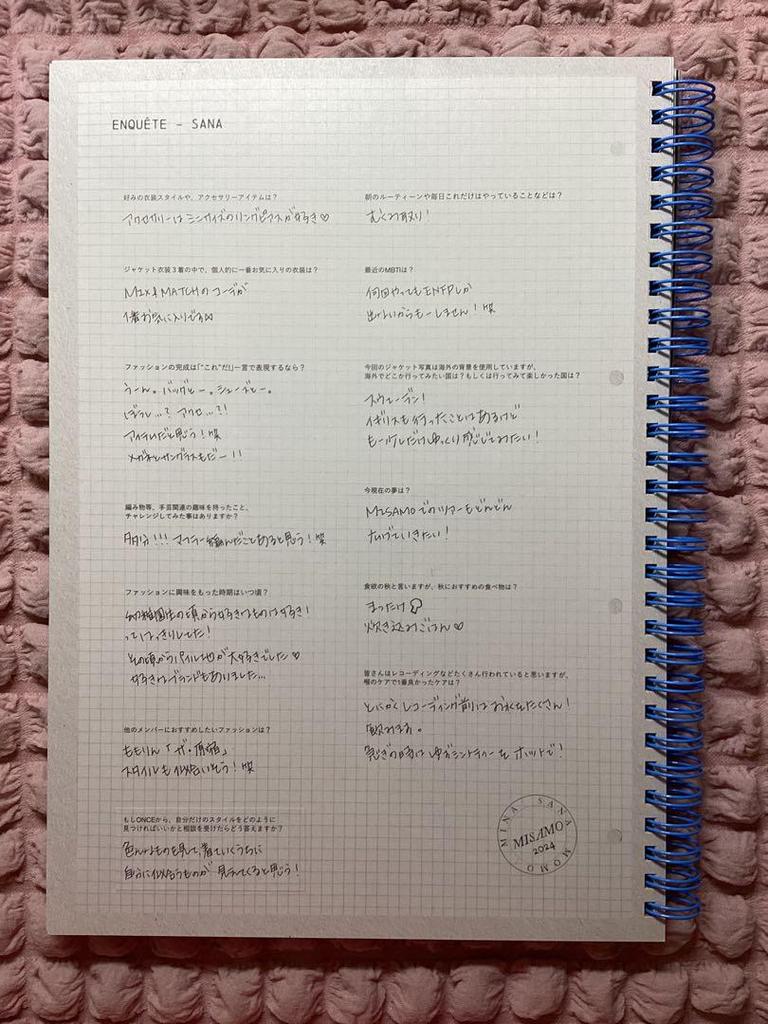 ENQUÊTE - SANA
好みの衣装スタイルや、アクセサリーアイテムは？
アクセサリーはミニサイズのリングピアスが好き♡
ジャケット衣装3着の中で、個人的に一番お気に入りの衣装は？
MIX & MATCHのコーデが
1番お気に入りです
ファッションの完成は｢"これ"だ!｣一言で表現するなら？
うーん。バッグとー。シューズとー。
ぼうし…？アクセ…？！
アイテムだと思う！笑
メガネとサングラスもだー！！
編み物等、手芸関連の趣味を持ったこと、
チャレンジしてみた事はありますか？
多分！！！マフラー編んだことあると思う！笑
ファッションに興味をもった時期はいつ頃？
幼稚園生の頃から好きなものは好き！
ってはっきりしてた！
その頃からパイル地が大好きでした♡
好きなブランドもありました…
他のメンバーにおすすめしたいファッションは？
ももりん「ザ・原宿」
スタイルも似合いそう！笑
もしONCEから、自分だけのスタイルをどのように
見つければいいかと相談を受けたらどう答えますか？
色んなものを見て、着ていくうちに
自分に似合うものが見えてくると思う！
朝のルーティーンや毎日これだけはやっていることなどは？
むくみ取り！
最近のMBTIは？
何回やってもENFPしか
出ないからもーしません！笑
今回のジャケット写真は海外の背景を使用していますが、
海外でどこか行ってみたい国は？もしくは行ってみて楽しかった国は？
スウェーデン！
イギリスも行ったことはあるけど
もー少しだけゆっくり感じてみたい！
今現在の夢は？
MISAMOでのツアーもどんどん
広げていきたい！
食欲の秋と言いますが、秋におすすめの食べ物は？
まつたけ
炊き込みごはん♡
皆さんはレコーディングなどたくさん行われていると思いますが、
喉のケアで1番良かったケアは？
とにかくレコーディング前はお水をたくさん！
飲みます。
急ぎの時はゆずミントティーをホットで！
MINA SANA MOMO
MISAMO
2024